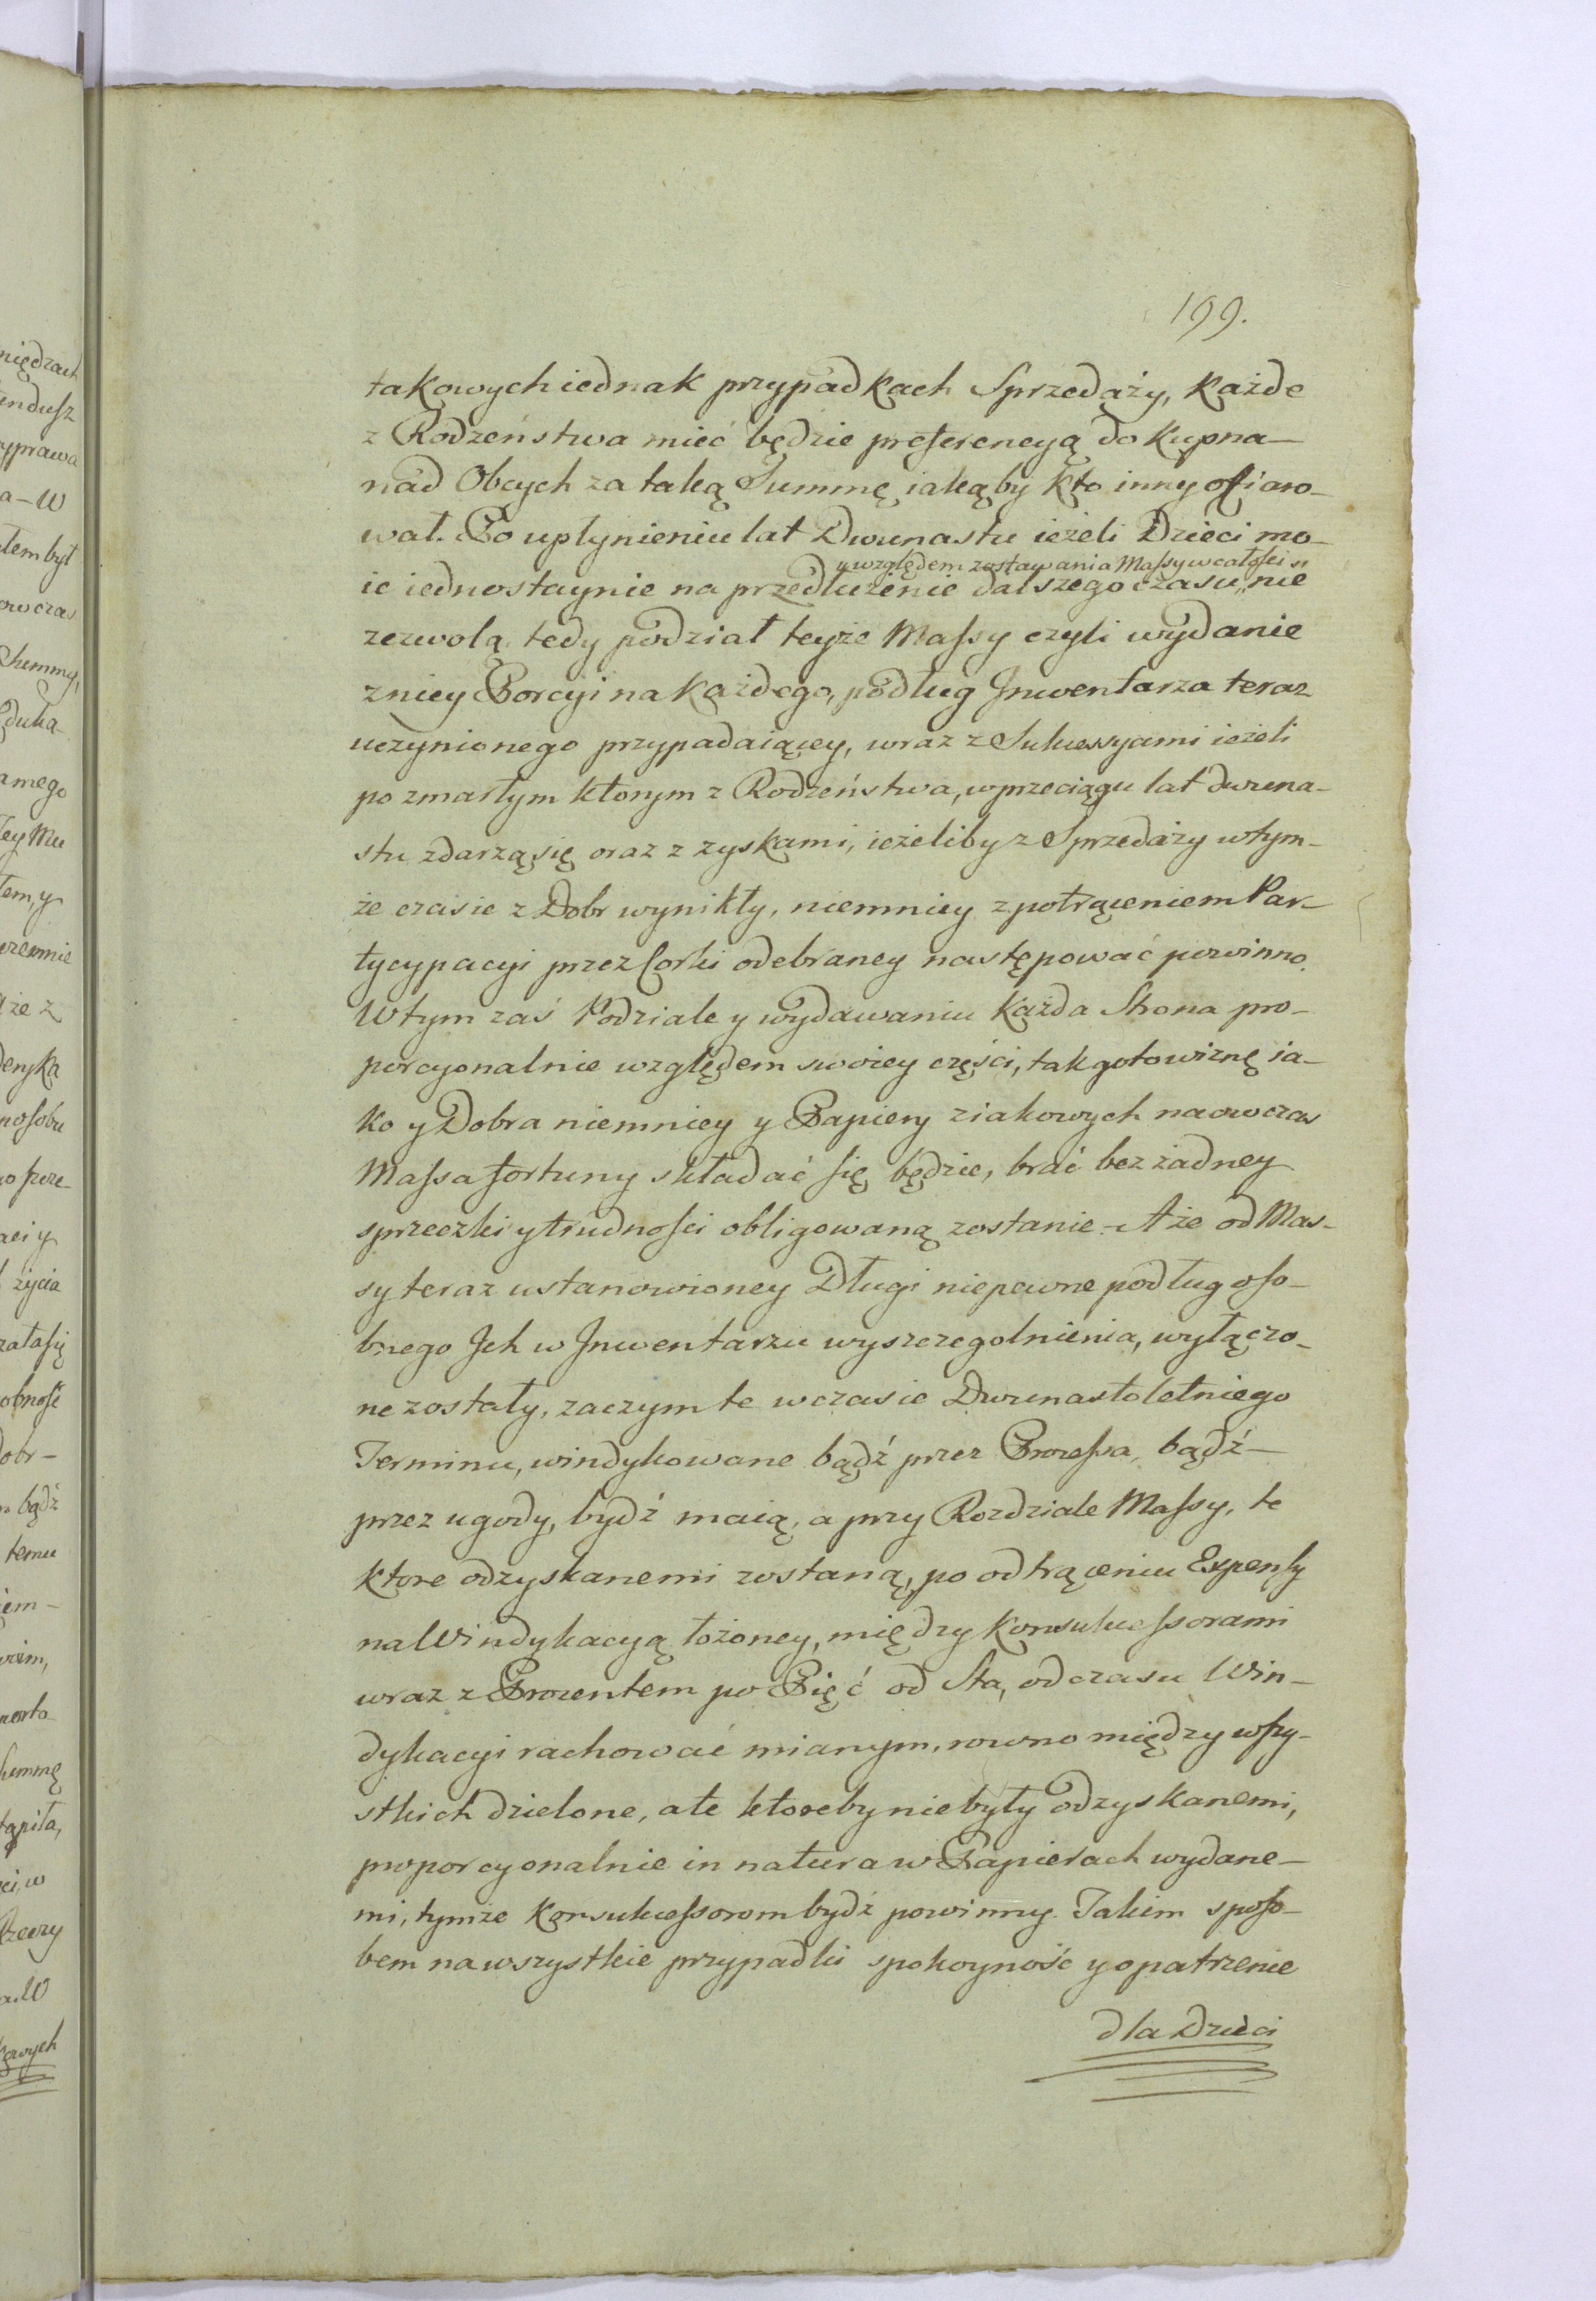 199.
takowych iednak przypadkach Sprzedaży, każde
z Rodzeństwa mieć będzie preferencyą do kupna—
nad Obcych za taką Summę iakąby kto inny ofiaro-
wał. Po upłynieniu lat Dwunastu ieżeli Dzieci mo-
y względem zostawania Maſsy w całości "
ie iednostaynie na przedłużenie dalszego czasu „ nie
zezwolą, tedy podział teyże Maſsy czyli wydanie
zniey Porcyi na każdego, podług Jnwentarza teraz
uczynionego przypadaiącey, wraz z Sukcessyami ieżeli
po zmarłym ktorym z Rodzeństwa, wprzeciągu lat dwuna-
stu zdarzą się oraz z zyskami, ieżeliby z Sprzedaży wtym-
że czasie z Dobr wynikły, niemniey zpotrąceniem Par-
tycypacyi przez Corki odebraney następować powinno.
W tym zaś Podziale y wydawaniu każda Strona pro-
porcyonalnie względem swoiey części, tak gotowiznę ia-
ko y Dobra niemniey y Papiery ziakowych naowczas
Maſsa fortuny składać ſię będzie, brać bez żadney
sprzeczki y trudnoſci obligowaną zostanie. A że od Mas-
sy teraz ustanowioney Długi niepewne podług oſo-
bnego Jch w Jnwentarzu wyszczegolnienia, wyłączo-
ne zostały, zaczym te wczasie Dwunastoletniego
Terminu, windykowane bądź przez Proceſsa, bądź—
przez ugody, bydź maią, a przy Rozdziale Maſsy, te
ktore odzyskanemi zostaną, po odtrąceniu Expenſy
na Windykacyą łożoney, między Konsukceſsorami
wraz z Procentem po Pięć od Sta, od czasu Win-
dykacyi rachować mianym, rowno między wſzy-
stkich dzielone, ale ktoreby nie były odzyskanemi,
proporcyonalnie in natura w Papierach wydane-
mi, tymże Konsukceſsorom bydź powinny. Takim spoſo-
bem na wszystkie przypadki spokoyność y opatrzenie
dla Dzieci